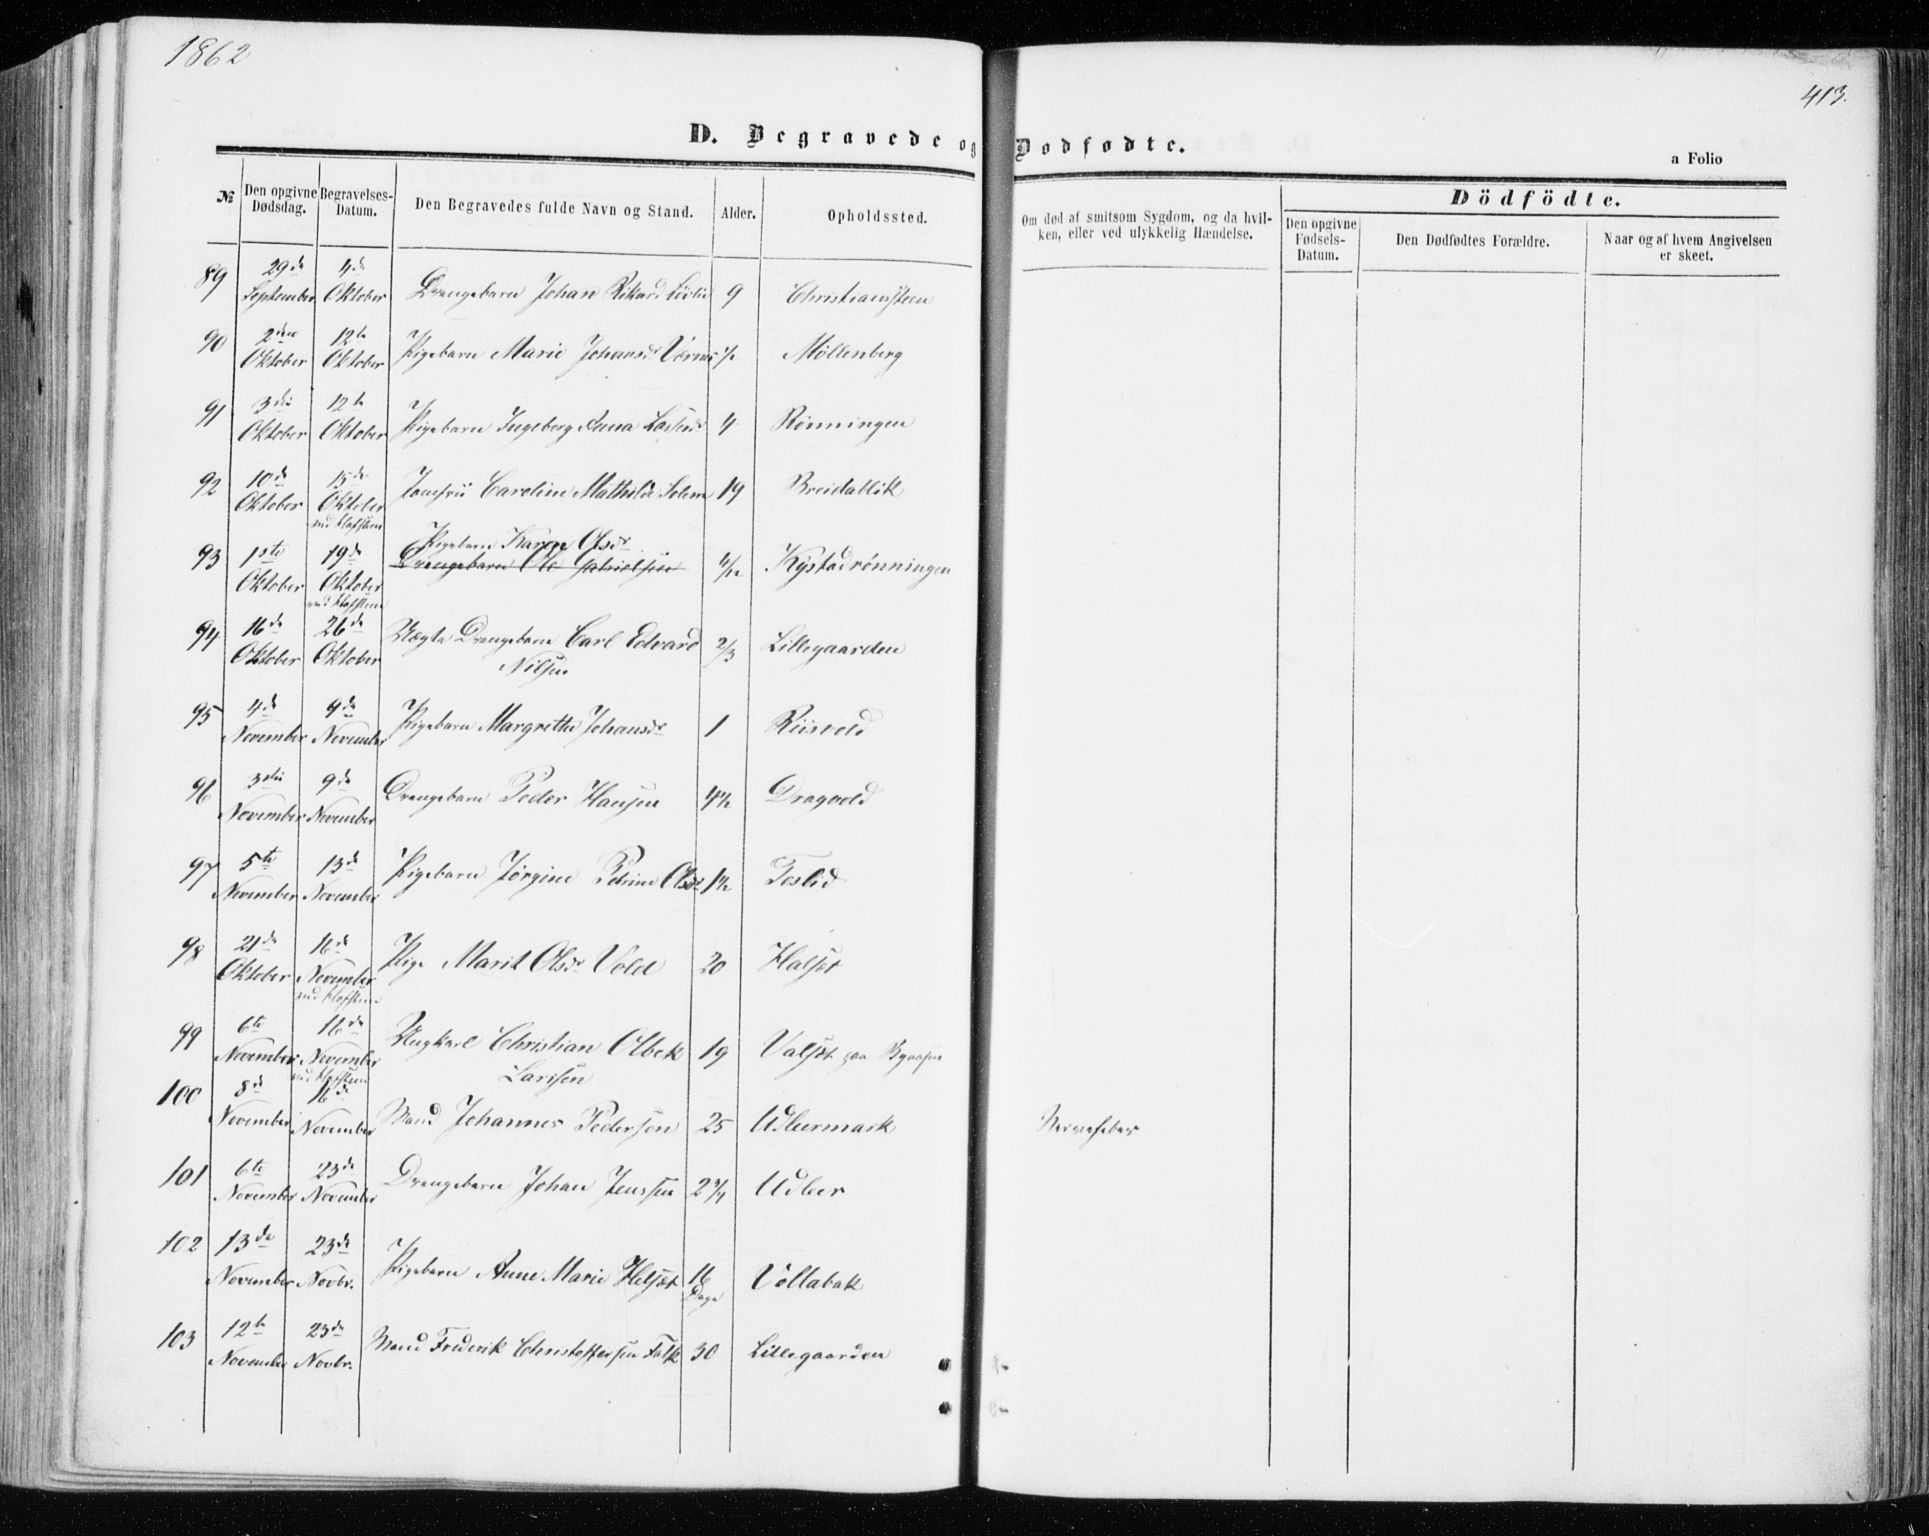 1862
413.
D. Begravede og Dødfødte.
a Folio
Dödfödte.
№
Den opgivne Dødsdag.
Begravelses-Datum.
Den Begravedes fulde Navn og Stand.
Alder.
Opholdssted.
Om død af smitsom Sygdom, og da hvil-
ken, eller ved ulykkelig Hændelse.
Den opgivne Fødsels-Datum.
Den Dødfødtes Forældre.
Naar og af hvem Angivelsen
er skeet.
89 29de September 4de Oktober Drengebarn Johan Rikard 9 Christianssteen
90 2den Oktober 12te Oktober Pigebarn Marie Johansdr 1/2 Møllenberg
91 3die Oktober 12te Oktober Pigebarn Ingeborg Anna Larsdr 4 Rønningen
92 10de Oktober 15de Oktober Jomfru Caroline Mathilde Solem 19 Breidablik
Pigebarn Karen Olsdr
93 1ste Oktober 19de Oktober Drengebarn Ole Gabrielsen 4/12 Kystadrønningen
94 16de Oktober 26de Oktober Uægte Drengebarn Carl Edvard 2/3 Lillegaarden
Nilsen
95 4de November 9de November Pigebarn Margrethe Johansdr 1 Riisvold
96 3die November 9de November Drengebarn Peder Hansen 4 1/2 Dragvold
97 5te November 13de November Pigebarn Jørgine Petrine Olsdr 1 1/2 Teslid
98 21de Oktober 16de November Pige Marit Olsdr Vold 20 Halset
99 6te November 16de November Ungkarl Christian Olbek 19 Valset paa Byaasen
Larssen
100 8de November 16de November Mand Johannes Pedersen 25 Udleermark Nervefeber
101 6te November 23de November Drengebarn Johan Jenssen 2 3/4 Udleer
102 13de November 23de Novbr. Pigebarn Anne Marie Helset 16 Dage Vollabak
103 12te November 23de Novbr. Mand Frederik Christoffersen Falk 30 Lillegaarden